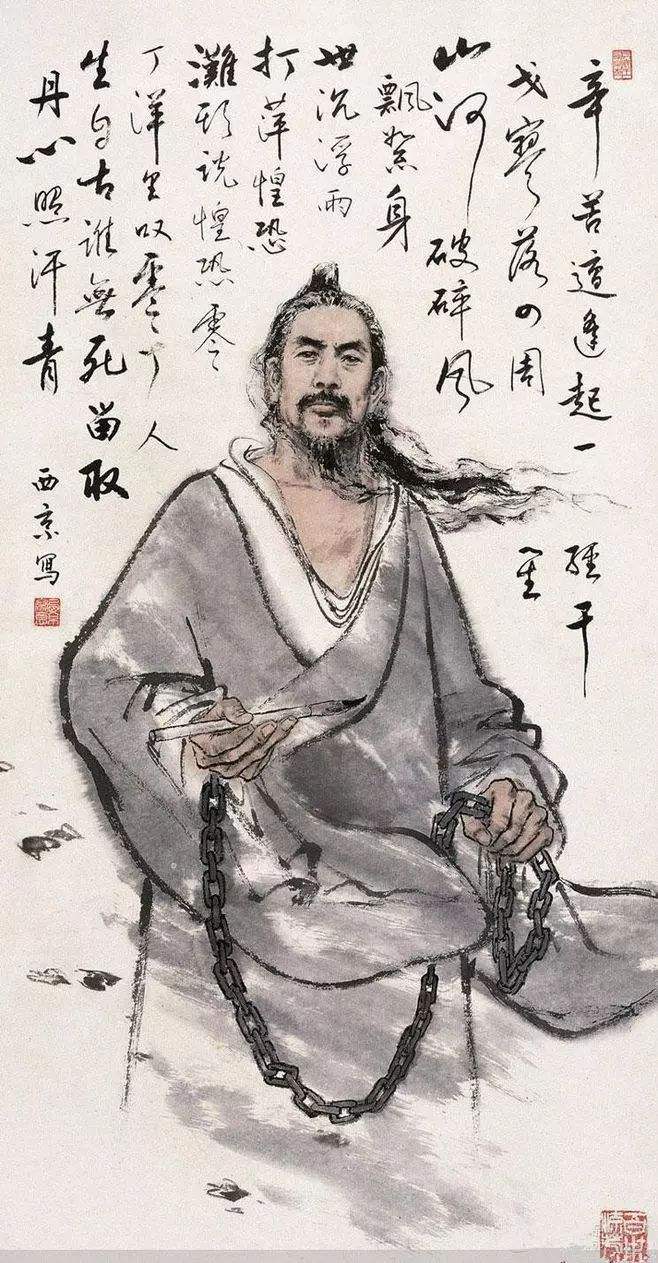 辛苦遭逢起一經干
戈寥落四周星
山河破碎风
飄絮身
世沉浮雨
打萍惶恐
灘頭說惶恐零
丁洋里叹零丁人
生自古誰無死留取
丹心照汗青
西京寫